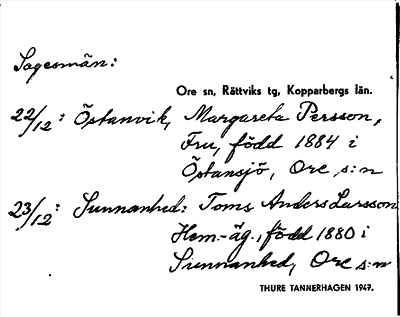 Sagesmän:
Ore sn, Rättviks tg, Kopparbergs län.
22/12: Östanvik, Margareta Persson,
Fru, född 1884 i
Östansjö, Ore s:n
23/12: Sunnanhed: Toms Anders Larsson
Hem.-äg., född 1880 i
Sunnanhed, Ore s:n
THURE TANNERHAGEN 1947.